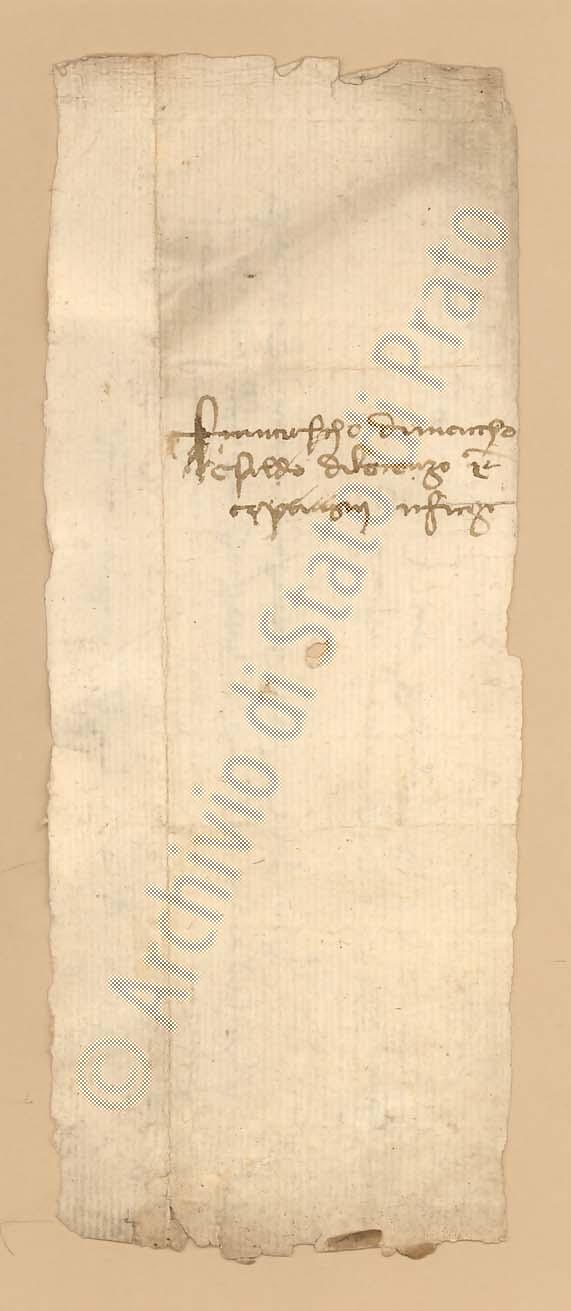 Franciescho di Marcho
e Stoldo di Lorenzo
e chonpangni in Firenze
© Archivio di Stato di Prato